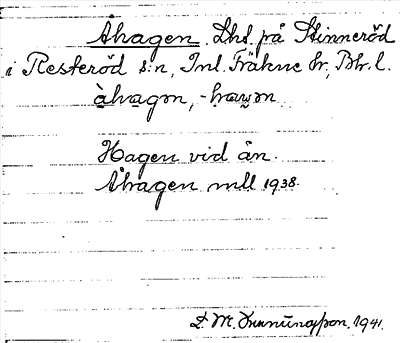 Åhagen. Lhs. på Stinneröd
i Resteröd s:n, Inl. Fräkne hr, Bh. l.
àhagən, -haɣən
Hagen vid ån.
Åhagen mll 1938.
1941.